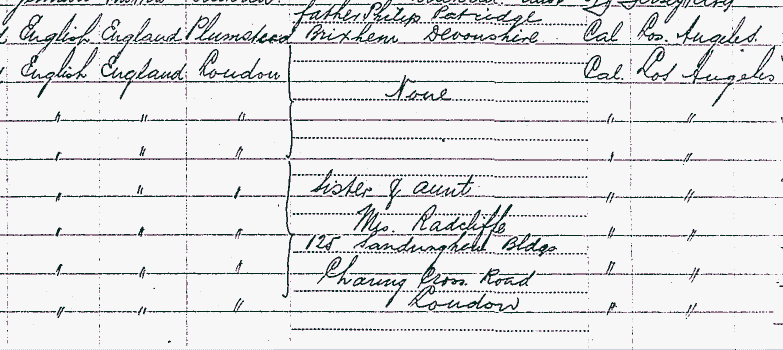 father Philip Patridge
English England Plumstead Brixhem Devonshire Cal Los Angeles.
English England London Cal. Los Angeles
None
" " " " "
" " " " "
" " " Sister & aunt " "
Mrs. Radcliffe
" " " " "
125 Sandringham Bldgs
" " " Charing Cross Road " "
London
" " " " "